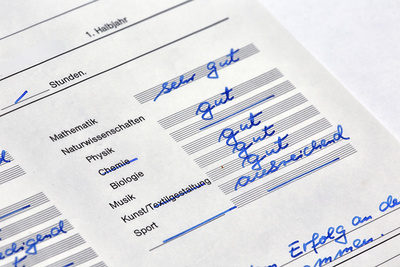 1. Halbjahr
Stunden.
Mathematik sehr gut
Naturwissenschaften gut
Physik
Chemie gut
Biologie gut
Musik gut
Kunst/Textilgestaltung ausreichend
Sport
Erfolg an de